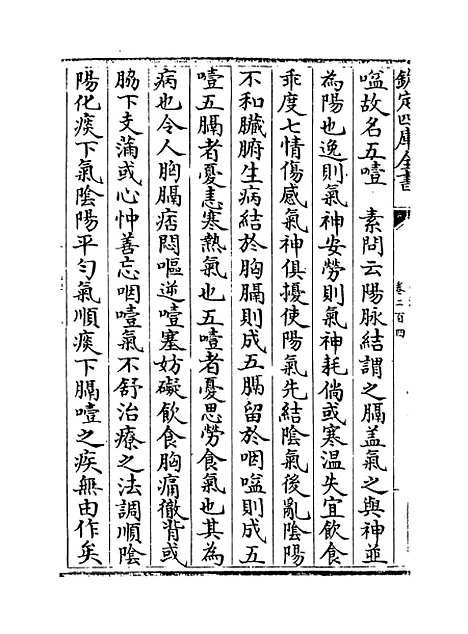 欽定四庫全書
卷二百四
嗌故名五噎　素問云陽脉結謂之膈盖氣之與神並
為陽也逸則氣神安勞則氣神耗倘或寒温失宜飲食
乖度七情傷感氣神俱擾使陽氣先結陰氣後亂陰陽
不和臟腑生病結於胸膈則成五膈留於咽嗌則成五
噎五膈者憂恚寒熱氣也五噎者憂思勞食氣也其為
病也令人胸膈痞悶嘔逆噎塞妨礙飲食胸痛徹背或
脇下支滿或心忡善忘咽噎氣不舒治療之法調順陰
陽化痰下氣陰陽平匀氣順痰下膈噎之疾無由作矣